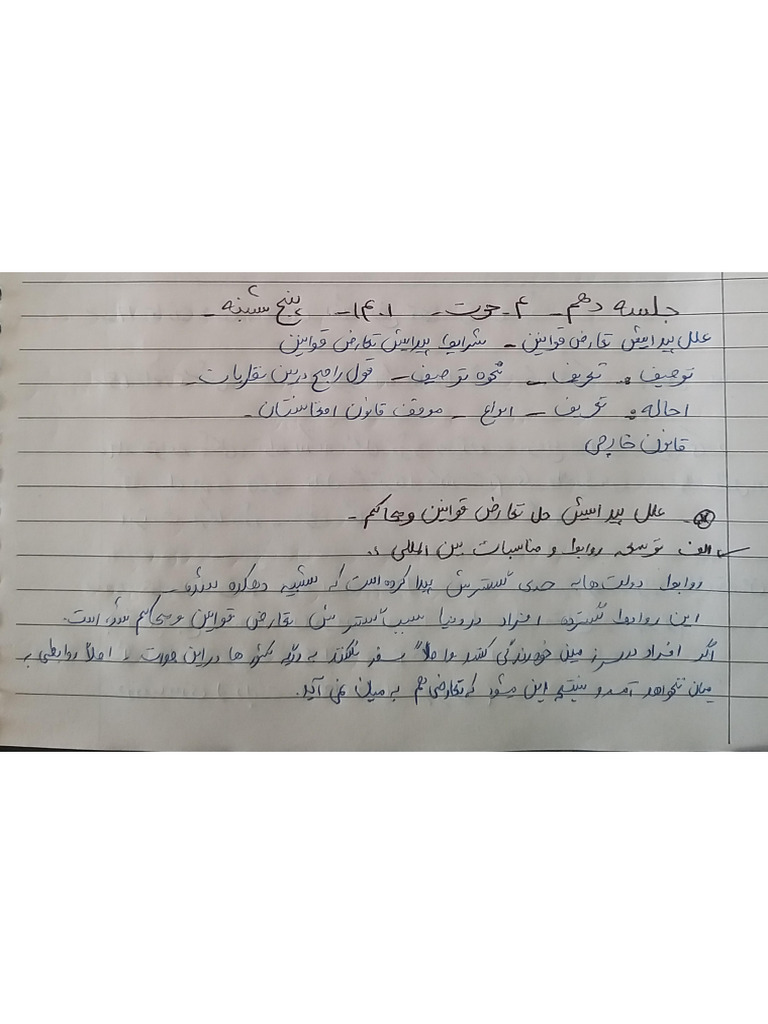 جلسه دهم - ۴ - حوت - ۱۴۰۱ - پنج شنبه -
علل پیدایش تعارض قوانین - شرایط پیدایش تعارض قوانین
توصیف: تعریف - نحوه توصیف - قول راجح در بین نظریات -
احاله: تعریف - انواع - موقف قانون افغانستان -
قانون خارجی
علل پیدایش حل تعارض قوانین و محاکم -
الف توسعه روابط و مناسبات بین المللی:
روابط دولت ها به حدی گسترش پیدا کرده است که شبیه دهکده شده -
این روابط گسترده افراد در دنیا سبب گسترش تعارض قوانین و محاکم شده است.
اگر افراد در سرزمین خود زندگی کنند و اصلاً سفر نکنند به دیگر کشور ها در این صورت اصلاً روابطی به
میان نخواهد آمد و نتیجه این میشود که تعارضی هم به میان نمی آید.